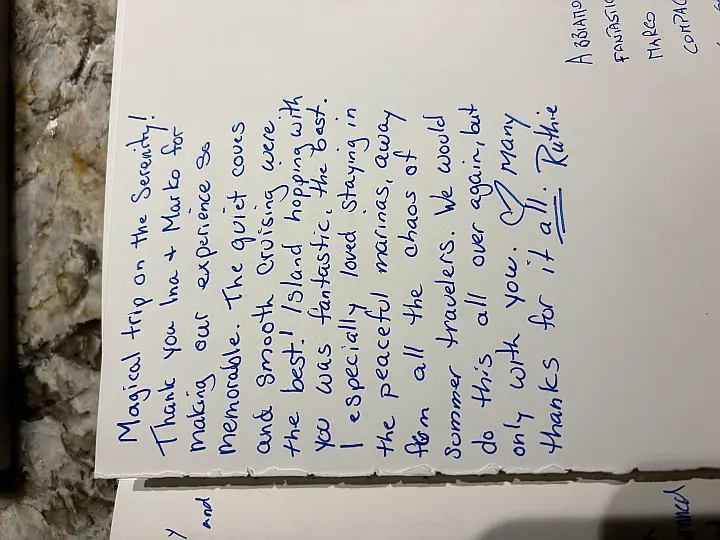 Magical trip on the Serenity!
Thank you Ina + Marko for
making our experience so
memorable. The quiet coves
and smooth cruising were
the best! Island hopping with
you was fantastic, the best.
I especially loved staying in
the peaceful marinas, away
from all the chaos of
summer travelers. We would
do this all over again, but
only with you. ♡ Many
thanks for it all. Ruthie
ABBIAMO
FANTASTIC
MARCO
COMPAG
and